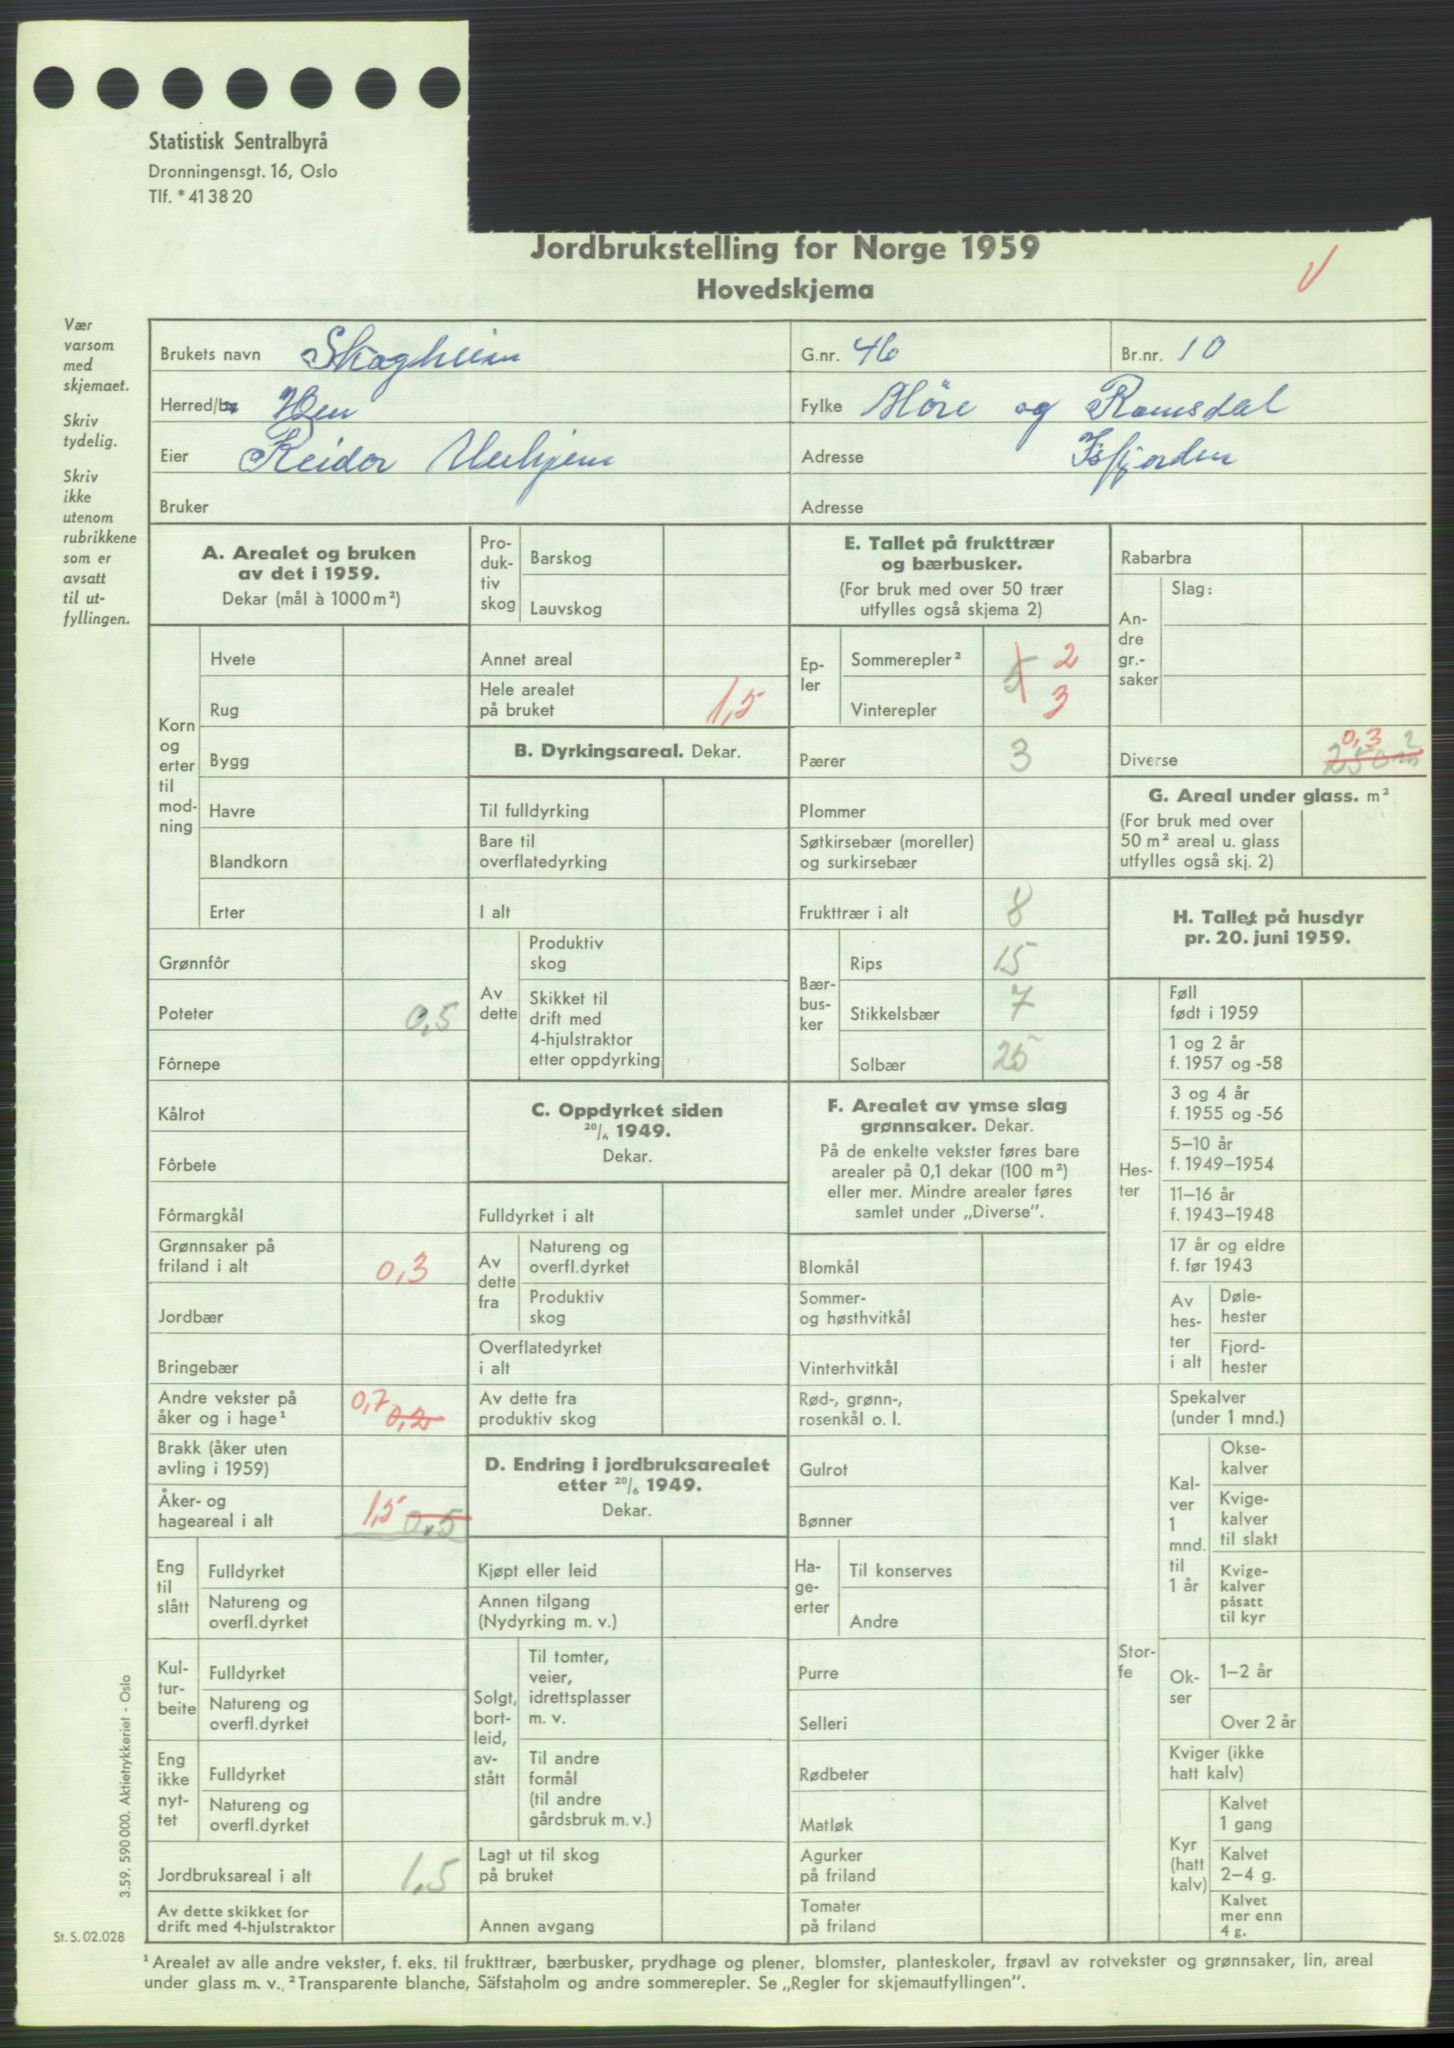 Statistisk Sentralbyrå
Dronningensgt. 16, Oslo
Tlf. * 41 38 20
Jordbrukstelling for Norge 1959
Hovedskjema
V
Vær
varsom
med
skjemaet.
Skriv
tydelig.
Skriv
ikke
utenom
rubrikkene
som er
avsatt
til ut-
fyllingen.
Brukets navn Skogheim
G.nr. 46
Br.nr. 10
Herred/by Hen
Fylke Möre og Romsdal
Eier Reidor
Adresse Isfjorden
Bruker
Adresse
A. Arealet og bruken
av det i 1959.
Dekar (mål à 1000 m²)
Korn
og
erter
til
mod-
ning
Hvete
Rug
Bygg
Havre
Blandkorn
Erter
Grønnfôr
Poteter 0,5
Fôrnepe
Kålrot
Fôrbete
Fôrmargkål
Grønnsaker på
friland i alt 0,3
Jordbær
Bringebær
Andre vekster på
åker og i hage¹ 0,7 0,2
Brakk (åker uten
avling i 1959)
Åker- og
hageareal i alt 1,5 0,5
Eng
til
slått
Fulldyrket
Natureng og
overfl.dyrket
Kul-
tur-
beite
Fulldyrket
Natureng og
overfl.dyrket
Eng
ikke
nyt-
tet
Fulldyrket
Natureng og
overfl.dyrket
Jordbruksareal i alt 1,5
Av dette skikket for
drift med 4-hjulstraktor
Pro-
duk-
tiv
skog
Barskog
Lauvskog
Annet areal
Hele arealet
på bruket 1,5
B. Dyrkingsareal. Dekar.
Til fulldyrking
Bare til
overflatedyrking
I alt
Av
dette
Produktiv
skog
Skikket til
drift med
4-hjulstraktor
etter oppdyrking
C. Oppdyrket siden
20/6 1949.
Dekar.
Fulldyrket i alt
Av
dette
fra
Natureng og
overfl.dyrket
Produktiv
skog
Overflatedyrket
i alt
Av dette fra
produktiv skog
D. Endring i jordbruksarealet
etter 20/6 1949.
Dekar.
Kjøpt eller leid
Annen tilgang
(Nydyrking m. v.)
Solgt,
bort-
leid,
av-
stått
Til tomter,
veier,
idrettsplasser
m. v.
Til andre
formål
(til andre
gårdsbruk m. v.)
Lagt ut til skog
på bruket
Annen avgang
E. Tallet på frukttrær
og bærbusker.
(For bruk med over 50 trær
utfylles også skjema 2)
Ep-
ler
Sommerepler² 2
5
Vinterepler 3
Pærer 3
Plommer
Søtkirsebær (moreller)
og surkirsebær
Frukttrær i alt 8
Bær-
bus-
ker
Rips 15
Stikkelsbær 7
Solbær 25
F. Arealet av ymse slag
grønnsaker. Dekar.
På de enkelte vekster føres bare
arealer på 0,1 dekar (100 m²)
eller mer. Mindre arealer føres
samlet under „Diverse".
Blomkål
Sommer-
og høsthvitkål
Vinterhvitkål
Rød-, grønn-,
rosenkål o. l.
Gulrot
Bønner
Ha-
ge-
erter
Til konserves
Andre
Purre
Selleri
Rødbeter
Matløk
Agurker
på friland
Tomater
på friland
Rabarbra
An-
dre
gr.-
saker
Slag:
Diverse 0,3 250 m²
G. Areal under glass. m²
(For bruk med over
50 m² areal u. glass
utfylles også skj. 2)
H. Tallet på husdyr
pr. 20. juni 1959.
Hes-
ter
Føll
født i 1959
1 og 2 år
f. 1957 og -58
3 og 4 år
f. 1955 og -56
5–10 år
f. 1949–1954
11–16 år
f. 1943–1948
17 år og eldre
f. før 1943
Av
hes-
ter
i alt
Døle-
hester
Fjord-
hester
Stor-
fe
Spekalver
(under 1 mnd.)
Kal-
ver
1
mnd.
til
1 år
Okse-
kalver
Kvige-
kalver
til slakt
Kvige-
kalver
påsatt
til kyr
Ok-
ser
1–2 år
Over 2 år
Kviger (ikke
hatt kalv)
Kyr
(hatt
kalv)
Kalvet
1 gang
Kalvet
2–4 g.
Kalvet
mer enn
4 g.
3.59. 590 000. Aktietrykkeriet - Oslo
St. S. 02.028
¹ Arealet av alle andre vekster, f. eks. til frukttrær, bærbusker, prydhage og plener, blomster, planteskoler, frøavl av rotvekster og grønnsaker, lin, areal
under glass m. v. ² Transparente blanche, Säfstaholm og andre sommerepler. Se „Regler for skjemautfyllingen".